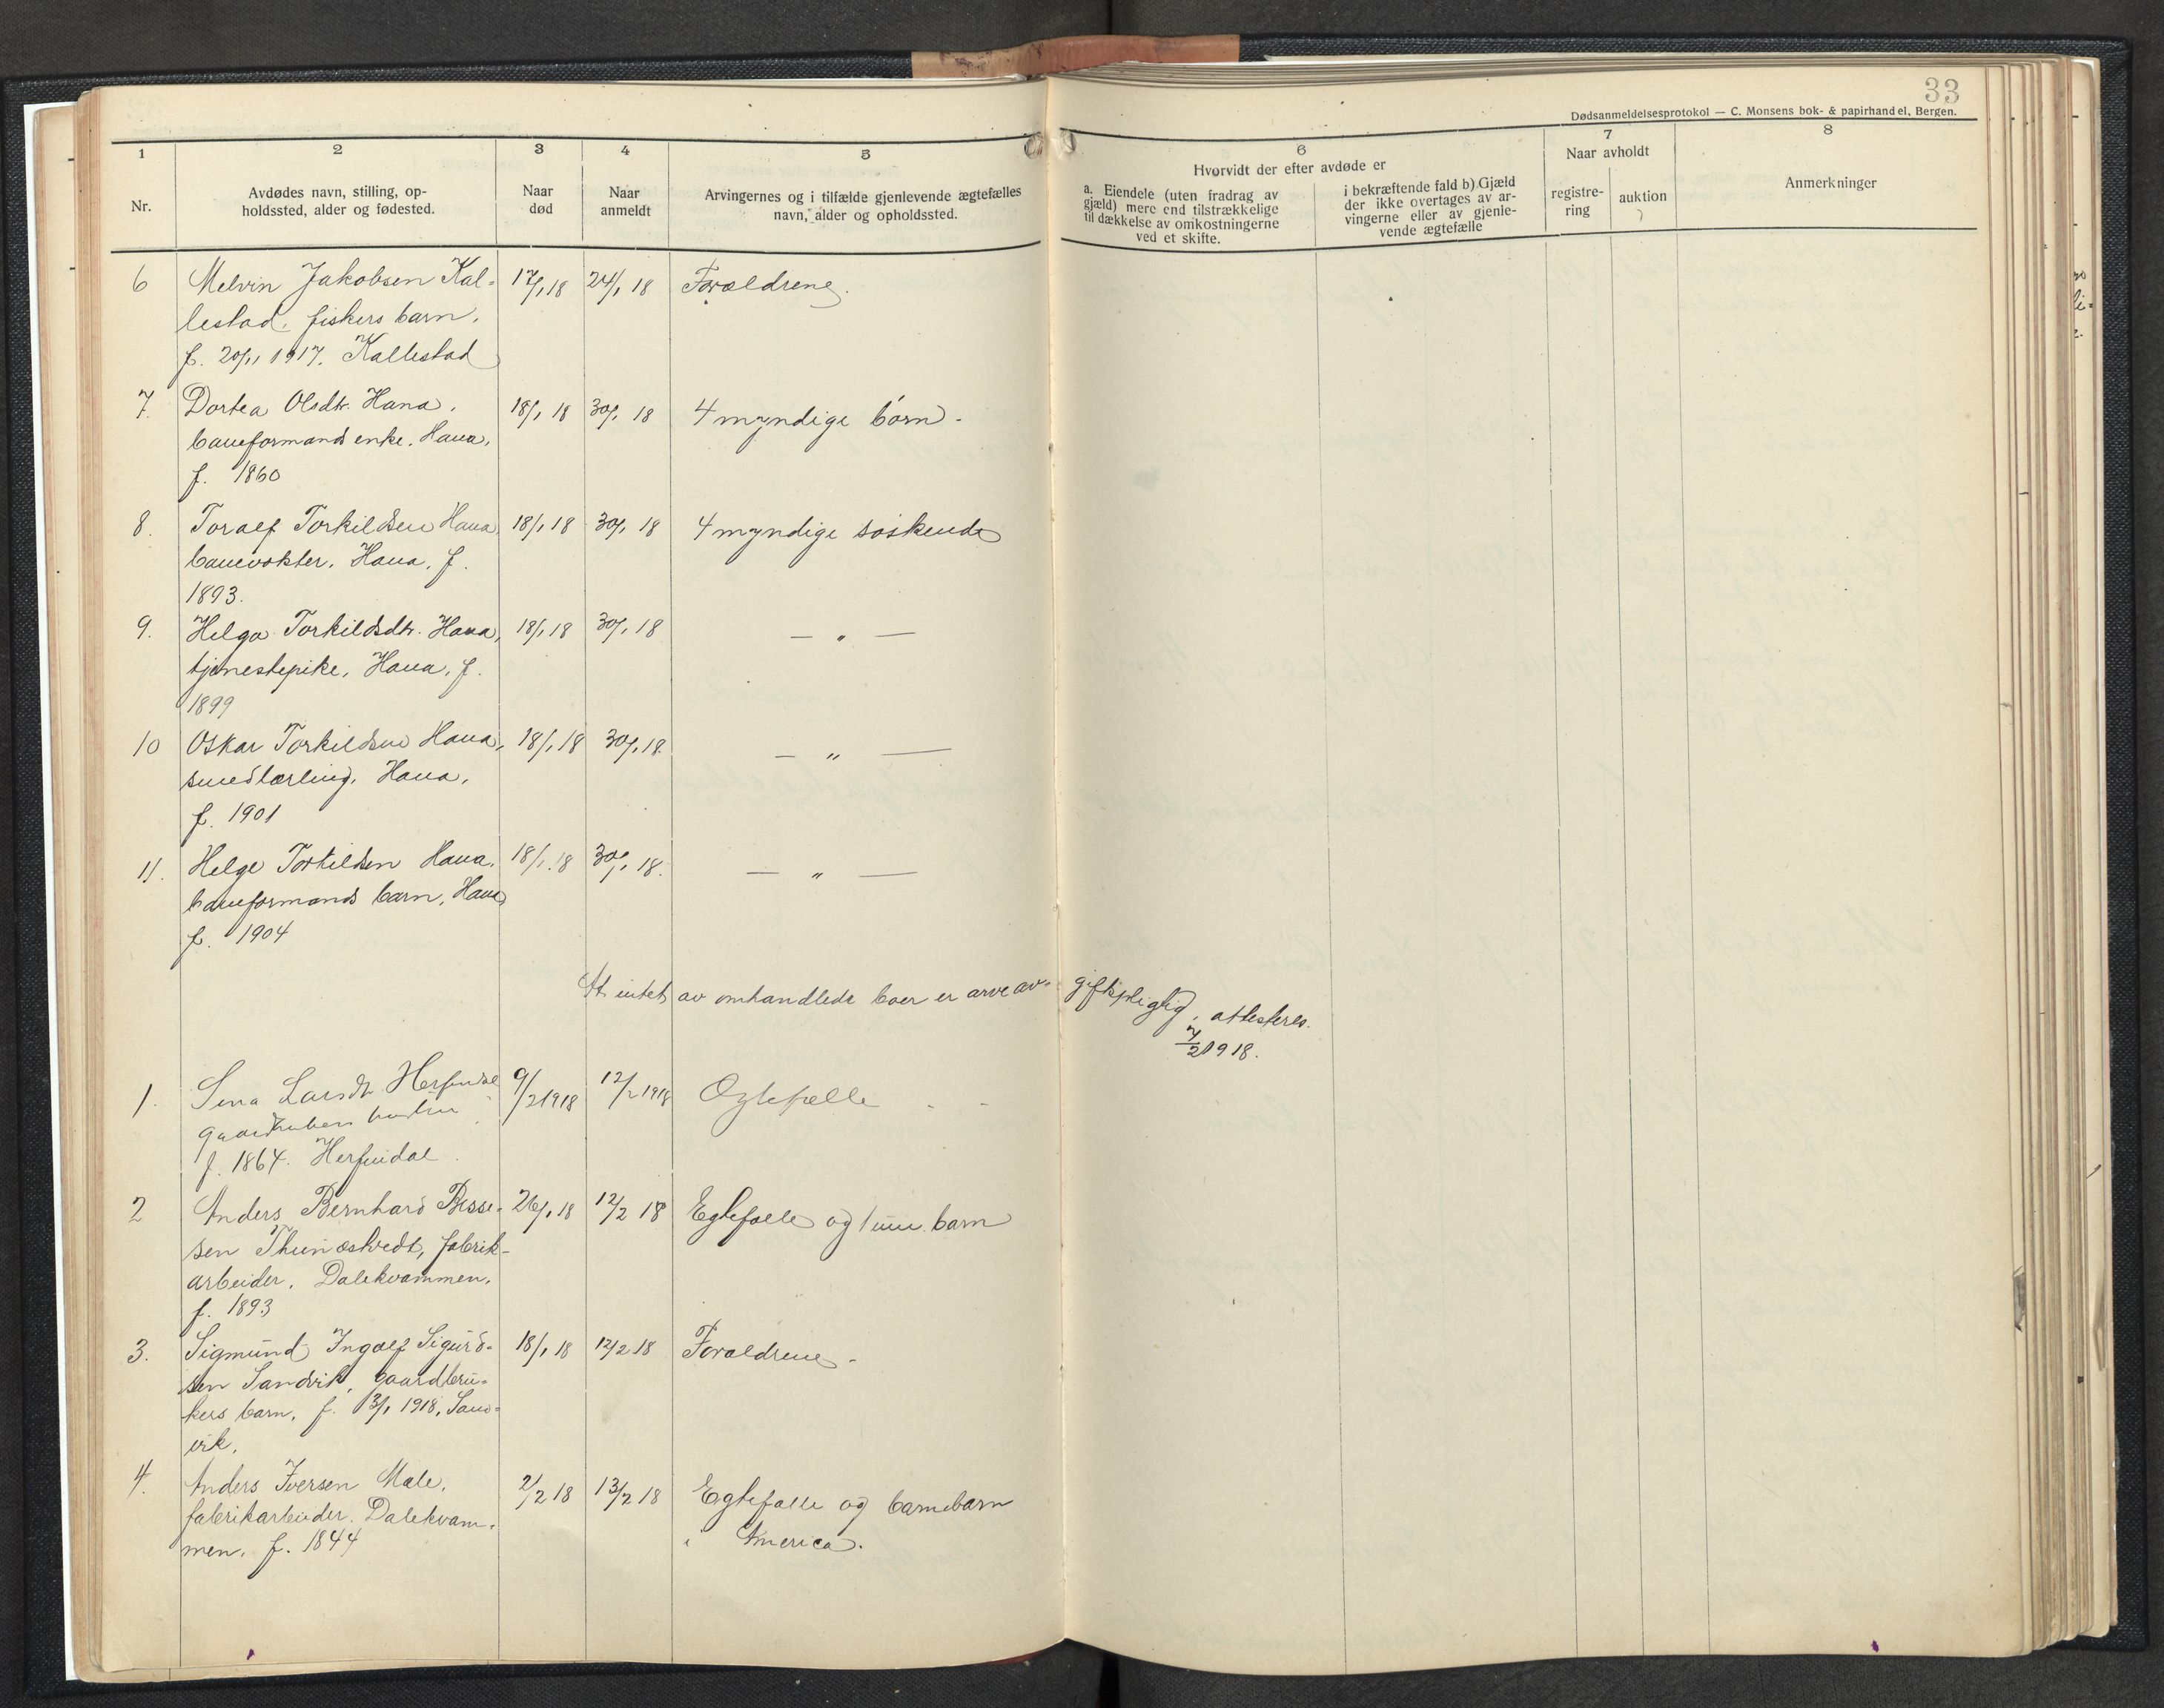 33
Dødsanmeldelsesprotokol — C. Monsens bok- & papirhandel, Bergen.
1
2
3
4
5
6
7
8
Nr.
Avdødes navn, stilling, op-
holdssted, alder og fødested.
Naar
død
Naar
anmeldt
Arvingernes og i tilfælde gjenlevende ægtefælles
navn, alder og opholdssted.
Hvorvidt der efter avdøde er
a. Eiendele (uten fradrag av
gjæld) mere end tilstrækkelige
til dækkelse av omkostningerne
ved et skifte.
i bekræftende fald b) Gjæld
der ikke overtages av ar-
vingerne eller av gjenle-
vende ægtefælle
Naar avholdt
registre-
ring
auktion
Anmerkninger
6 Melvin Jakobsen Kal- 17/1 18 24/1 18 Forældrene.
lestad, fiskers barn,
f. 20/11 1917. Kallestad
7. Dortea Olsdtr. Hana, 18/1 18 30/1 18 4 myndige børn.
baneformands enke. Hana,
f. 1860
8. Toralf Torkildsen Hana, 18/1 18 30/1 18 4 myndige søskende
banevokter, Hana, f.
1893.
9. Helga Torkildsdtr. Hana, 18/1 18 30/1 18 — " —
tjenestepike, Hana, f.
1899
10 Oskar Torkildsen Hana, 18/1 18 30/1 18. — " —
smedlærling, Hana,
f. 1901
11. Helge Torkildsen Hana, 18/1 18 30/1 18. — " —
baneformands barn, Hana
f. 1904
At intet av omhandlede boer er arveav- giftspligtig, attesteres.
7/2 1918.
1. Sina Larsdtr Herfindal 9/2 1918 12/2 1918 Ægtefælle
gaardbrukers hustru
f. 1864. Herfindal.
2 Anders Bernhard Besse- 26/1 18 12/2 18 Egtefælle og 1 um. barn
sen Thunæstvedt, fabrik-
arbeider, Dalekvammen,
f. 1893
3. Sigmund Ingolf Sigurd- 18/1 18 12/2 18 Forældrene.
sen Sandvik, gaardbru-
kers barn, f. 13/1 1918, Sand-
vik.
4. Anders Iversen Male, 2/2 18 13/2 18 Egtefælle og barnebarn
fabrikarbeider. Dalekvam- i America.
men. f. 1844